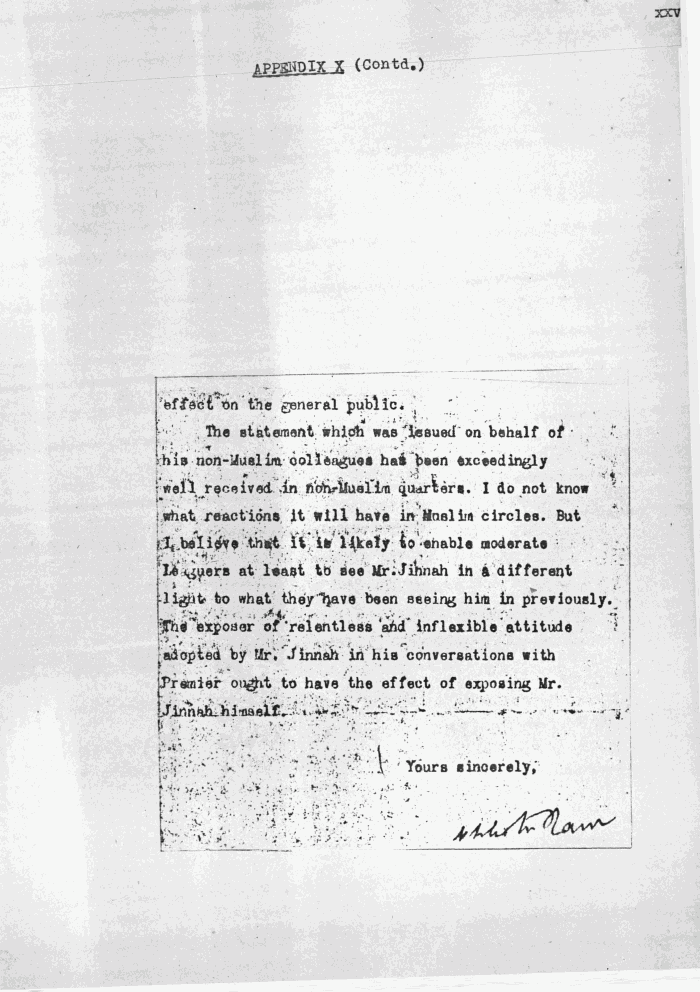 XXV
APPENDIX X (Contd.)
effect on the general public.
The statement which was issued on behalf of
his non-Muslim colleagues has been exceedingly
well received in non-Muslim quarters. I do not know
what reactions it will have in Muslim circles. But
I believe that it is likely to enable moderate
Leaguers at least to see Mr. Jinnah in a different
light to what they have been seeing him in previously.
The exposer of relentless and inflexible attitude
adopted by Mr. Jinnah in his conversations with
Premier ought to have the effect of exposing Mr.
Jinnah himself.
Yours sincerely,
Ram